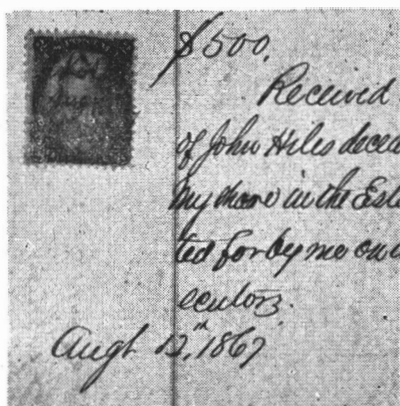 $500.
Received
of John Hiles decea
my share in the Est
ted for by me on
ecutors.
Augt 12th, 1867